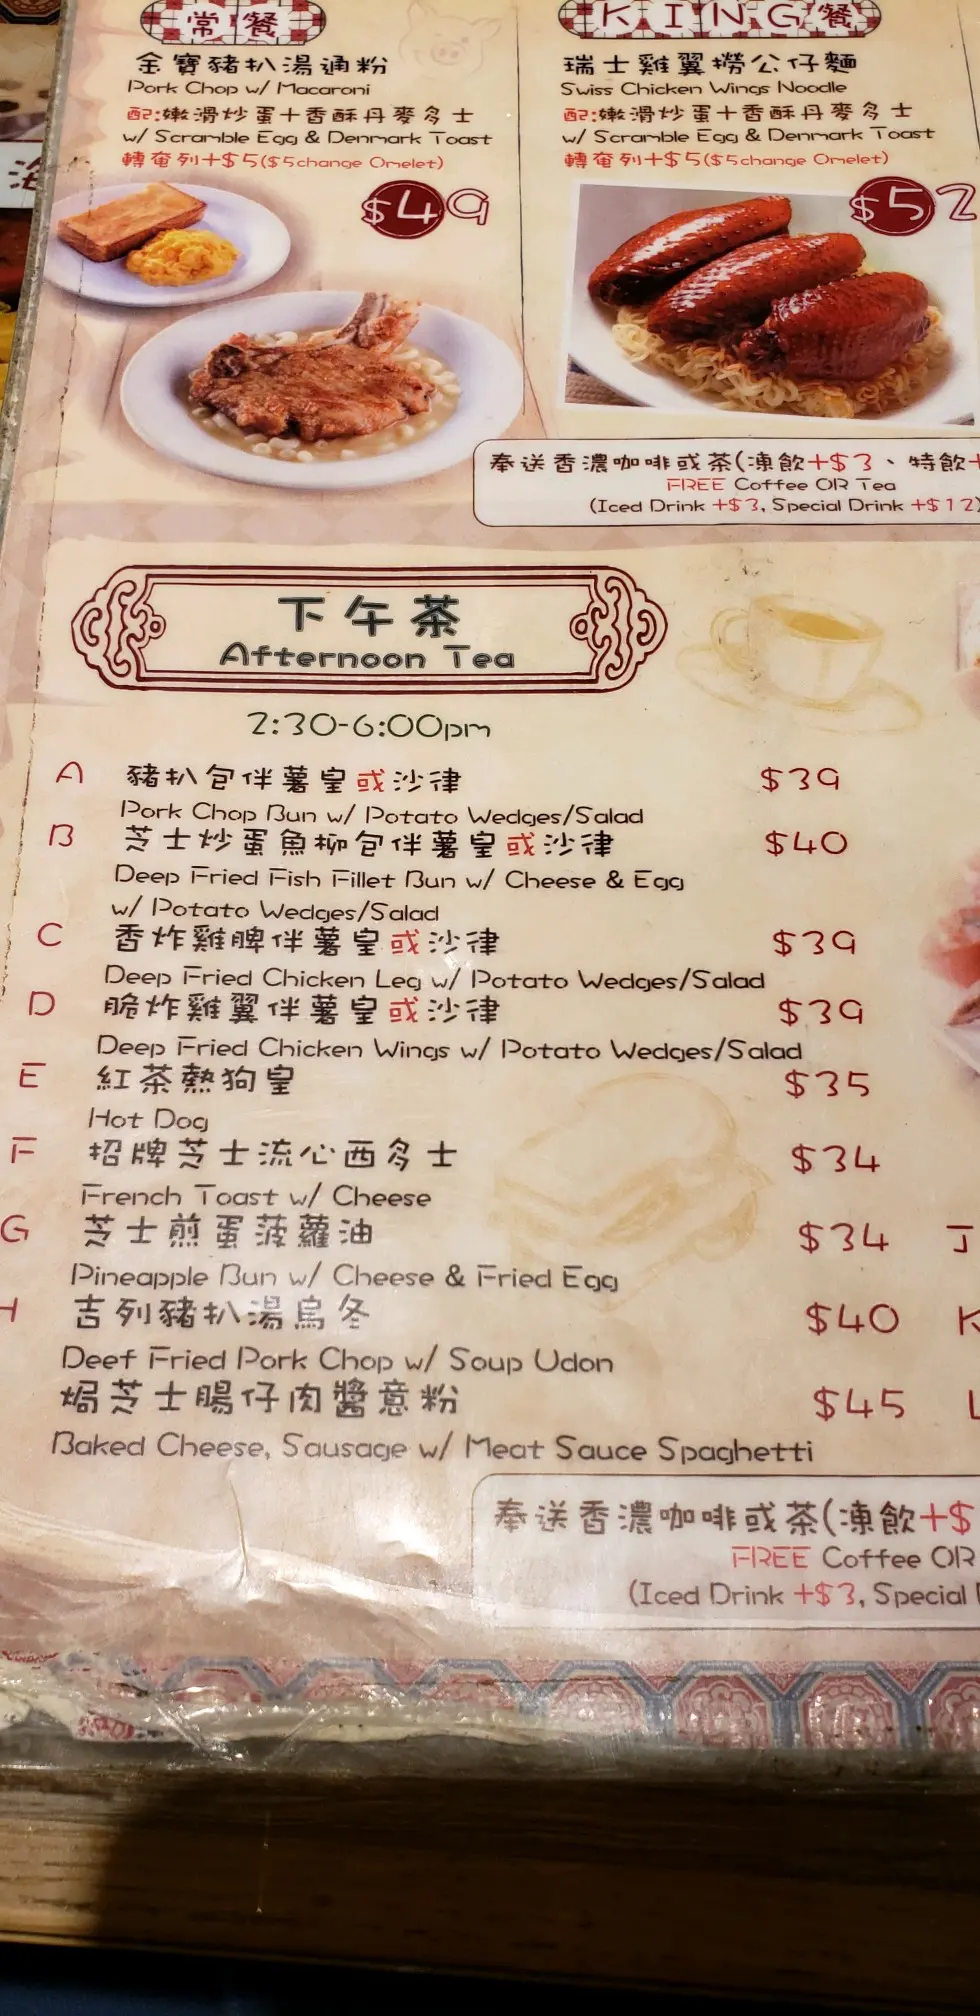 常餐
金寶豬扒湯通粉
Pork Chop w/ Macaroni
配:嫩滑炒蛋+香酥丹麥多士
w/ Scramble Egg & Denmark Toast
轉奄列+$5($5change Omelet)
$49
KING餐
瑞士雞翼撈公仔麵
Swiss Chicken Wings Noodle
配:嫩滑炒蛋+香酥丹麥多士
w/ Scramble Egg & Denmark Toast
轉奄列+$5($5change Omelet)
$52
奉送香濃咖啡或茶(凍飲+$3、特飲+
FREE Coffee OR Tea
(Iced Drink +$3, Special Drink +$12)
下午茶
Afternoon Tea
2:30-6:00pm
A 豬扒包伴薯皇或沙律 $39
Pork Chop Bun w/ Potato Wedges/Salad
B 芝士炒蛋魚柳包伴薯皇或沙律 $40
Deep Fried Fish Fillet Bun w/ Cheese & Egg
w/ Potato Wedges/Salad
C 香炸雞脾伴薯皇或沙律 $39
Deep Fried Chicken Leg w/ Potato Wedges/Salad
D 脆炸雞翼伴薯皇或沙律 $39
Deep Fried Chicken Wings w/ Potato Wedges/Salad
E 紅茶熱狗皇 $35
Hot Dog
F 招牌芝士流心西多士 $34
French Toast w/ Cheese
G 芝士煎蛋菠蘿油 $34 J
Pineapple Bun w/ Cheese & Fried Egg
H 吉列豬扒湯烏冬 $40 K
Deef Fried Pork Chop w/ Soup Udon
焗芝士腸仔肉醬意粉 $45 L
Baked Cheese, Sausage w/ Meat Sauce Spaghetti
奉送香濃咖啡或茶(凍飲+$
FREE Coffee OR
(Iced Drink +$3, Special